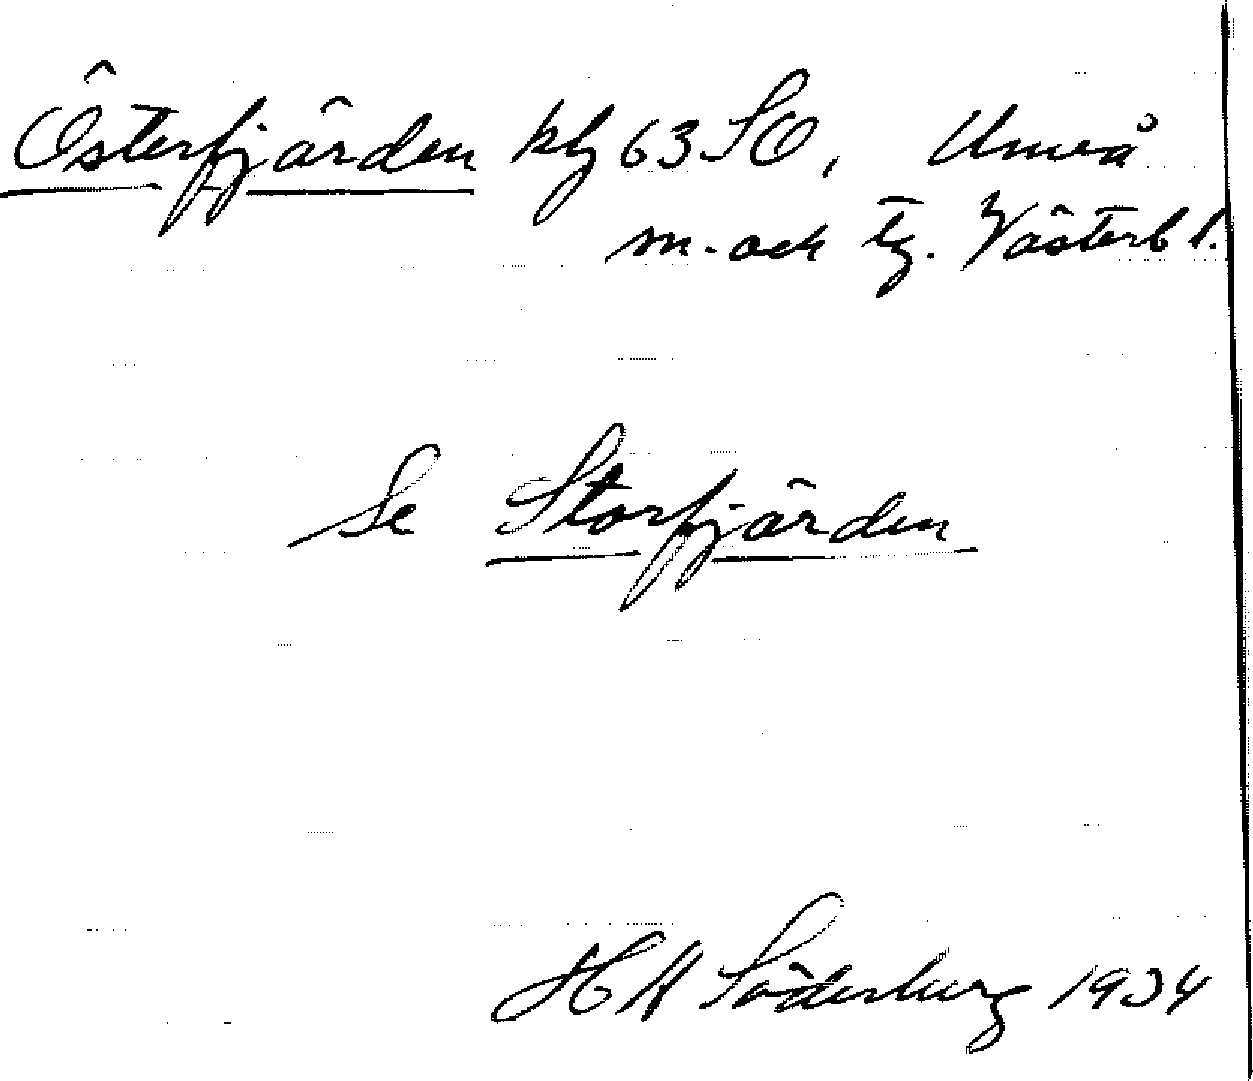 Österfjärden kbg 63 SO, Umeå
m. och tg. Västerb l.
Se Storfjärden
H A Söderberg 1934